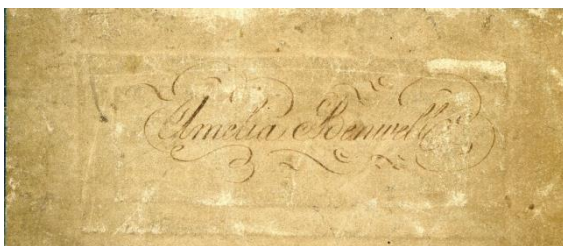 Amelia Benwell